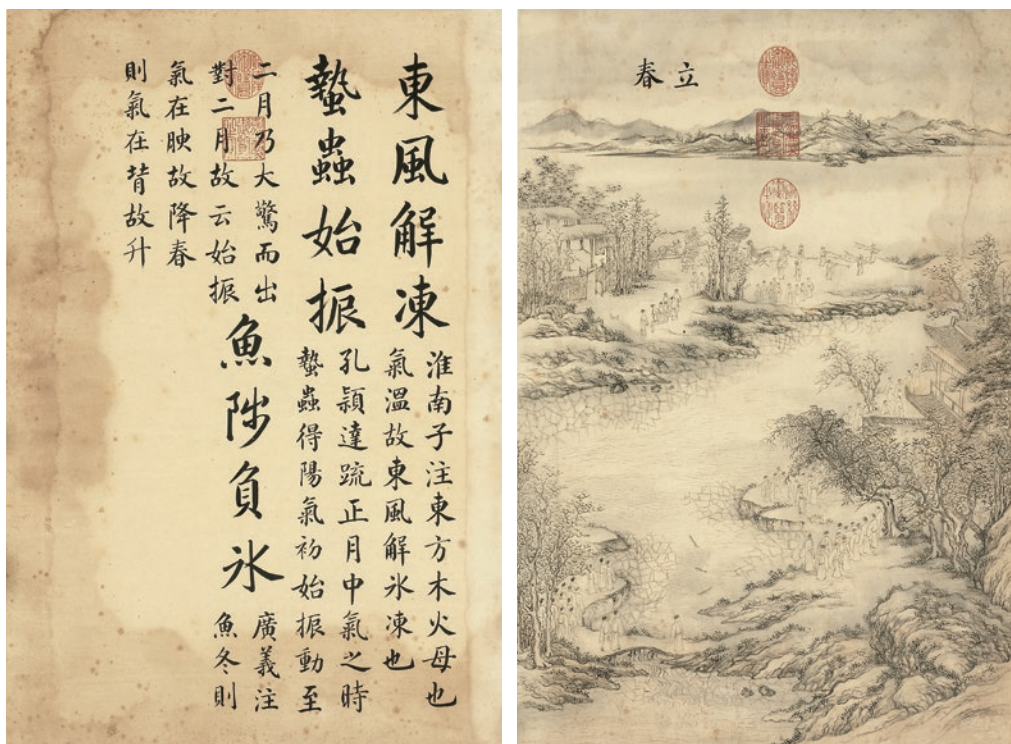 東風解凍
淮南子注東方木火母也
氣溫故東風解氷凍也
蟄蟲始振
孔穎達疏正月中氣之時
蟄蟲得陽氣初始振動至
二月乃大驚而出
對二月故云始振
魚陟負氷
廣義注
魚冬則
氣在腴故降春
則氣在脊故升
立春